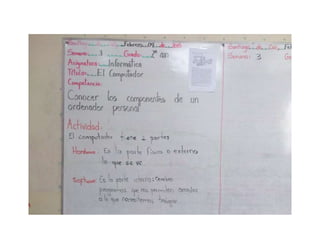 Santiago de Cali, Febrero 09 de
Semana: 3 Grado: 2º
Asignatura: Informática
Título: El Computador
Competencia:
Conocer los componentes de un
ordenador personal
Actividad:
El computador tiene 2 partes
Hardware: Es la parte física o externa
lo que se ve.
Software: Es la parte interna
programas que nos permiten
a lo que necesitemos trabajar.
Santiago de Cali, Feb
Semana: 3